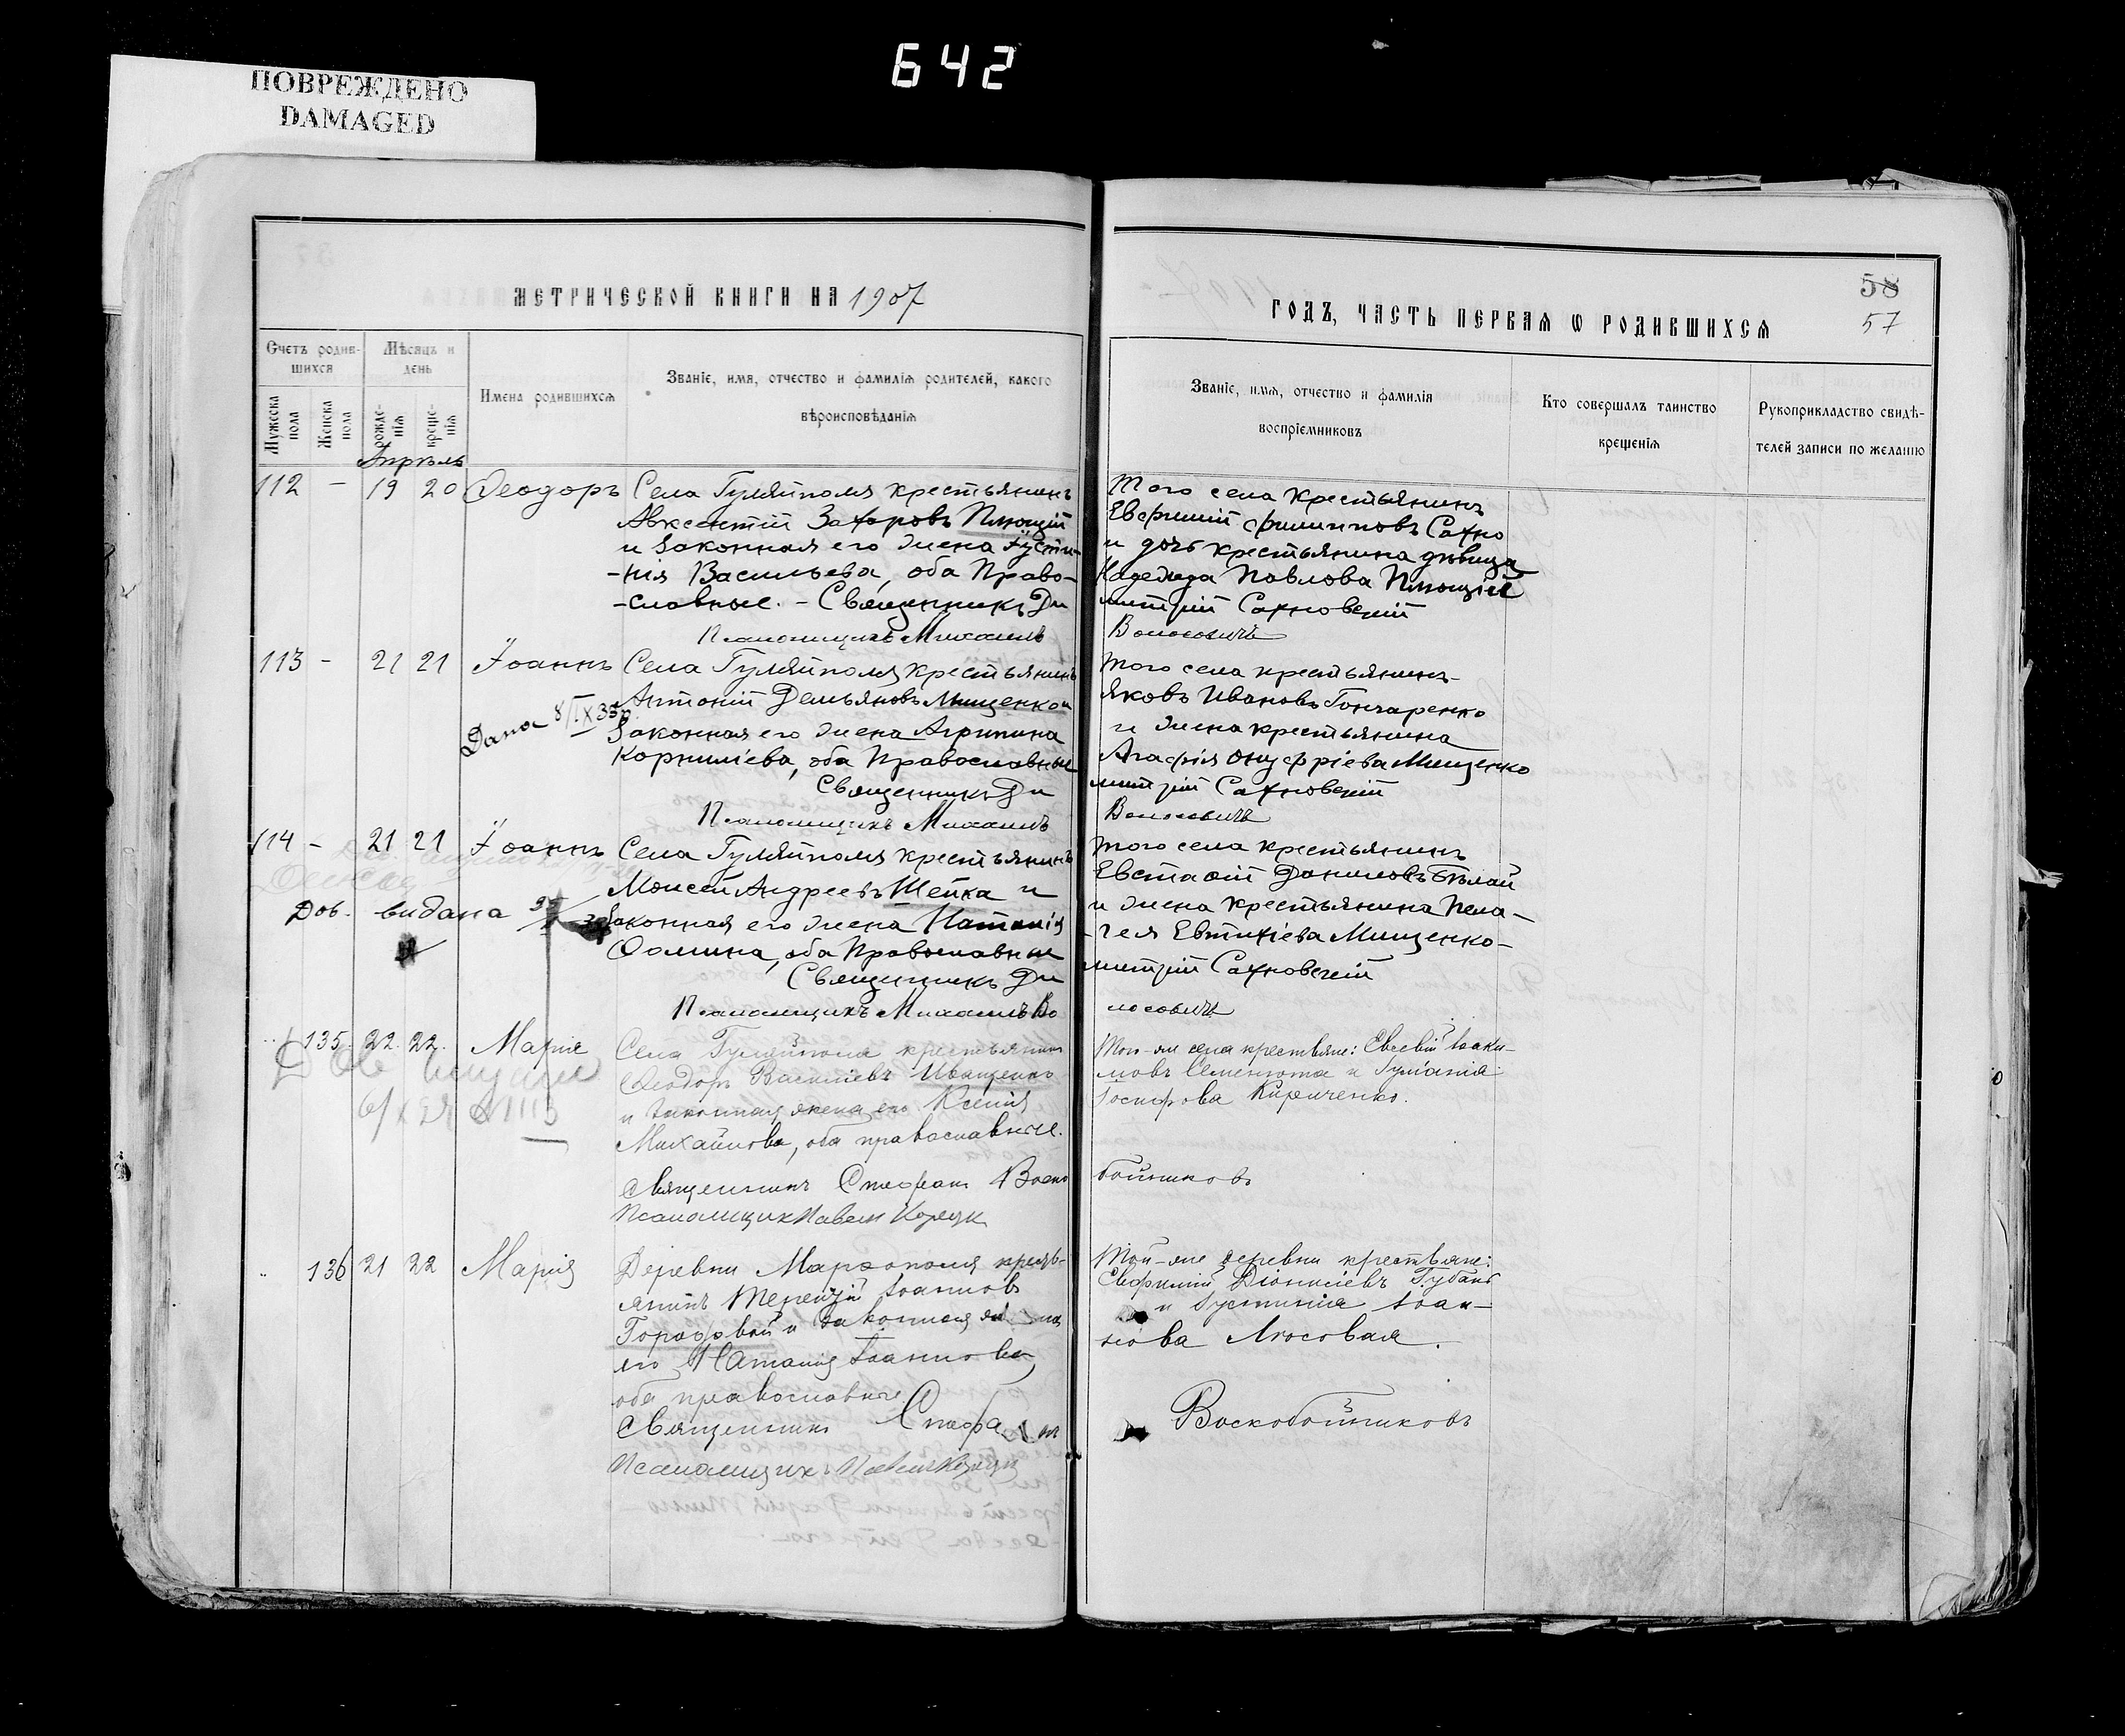 642
ПОВРЕЖДЕНО
DAMAGED
МЕТРИЧЕСКОЙ КНИГИ НА 1907
Счетъ родив-
шихся
Мѣсяцъ и
день
Имена родившихся
Званіе, имя, отчество и фамилія родителей, какого
вѣроисповѣданія
Мужеска
пола
Женска
пола
рожде-
нія
креще-
нія
Апрѣль
112 - 19 20 Ѳеодоръ Села Гуляйполя крестьянинъ
Авксентій Захаровъ Плющій
и законная его жена Іусти-
-нія Васильева, оба Право-
-славные. - Священникъ Ди
Псаломщикъ Михаилъ
113 - 21 21 Іоаннъ Села Гуляйполя крестьянинъ
Антоній Демьяновъ Мищенко и
Дана 8/IX 35р.
законная его жена Агрипина
Корниліева, оба Православные
Священникъ Ди
Псаломщикъ Михаилъ
114 - 21 21 Іоаннъ Села Гуляйполя крестьянинъ
Моисей Андреевъ Шепка и
Дов. видана
законная его жена Наталія
Ѳомина, оба Православные
Священникъ Ди
Псаломщикъ Михаилъ Во
135. 22. 22. Марія Села Гуляйполя крестьянинъ
Ѳеодоръ Василіевъ Иващенко
и законная жена его Ксенія
Михайлова, оба православные.
Священникъ Стефанъ Воско
Псаломщик Павелъ Корецк
136 21 22 Марія Деревни Марѳополя кресть-
янинъ Терентій Іоанновъ
Городовой и законная жена
его Наталія Іоаннова,
оба православные
Священникъ Стефан
Псаломщикъ Павелъ
58
57
ГОДЪ, ЧАСТЬ ПЕРВАЯ Ѡ РОДИВШИХСЯ
Званіе, имя, отчество и фамилія
воспріемниковъ
Кто совершалъ таинство
крещенія
Рукоприкладство свидѣ-
телей записи по желанію
Того села крестьянинъ
Евфимій Филипповъ Сахно
и дочь крестьянина дѣвица
Надежда Павлова Плющій
митрій Сахновскій
Волосовичъ
Того села крестьянинъ-
Яковъ Ивановъ Гончаренко
и жена крестьянина
Агафія Онуфріева Мищенко
митрій Сахновскій
Волосовичъ
Того села крестьянинъ
Евстаѳій Даниловъ Бѣлай
и жена крестьянина Пела-
-гея Евтихіева Мищенко-
митрій Сахновскій
лосовичъ
Того-же села крестьяне: Евсевій Іоаки-
мовъ Семенюта и
Іосифова Кириченко.
бойниковъ
Той-же деревни крестьяне:
Евфимій Діонисіевъ Губань
и Іустинія Іоан-
нова Лосовая.
Воскобойниковъ